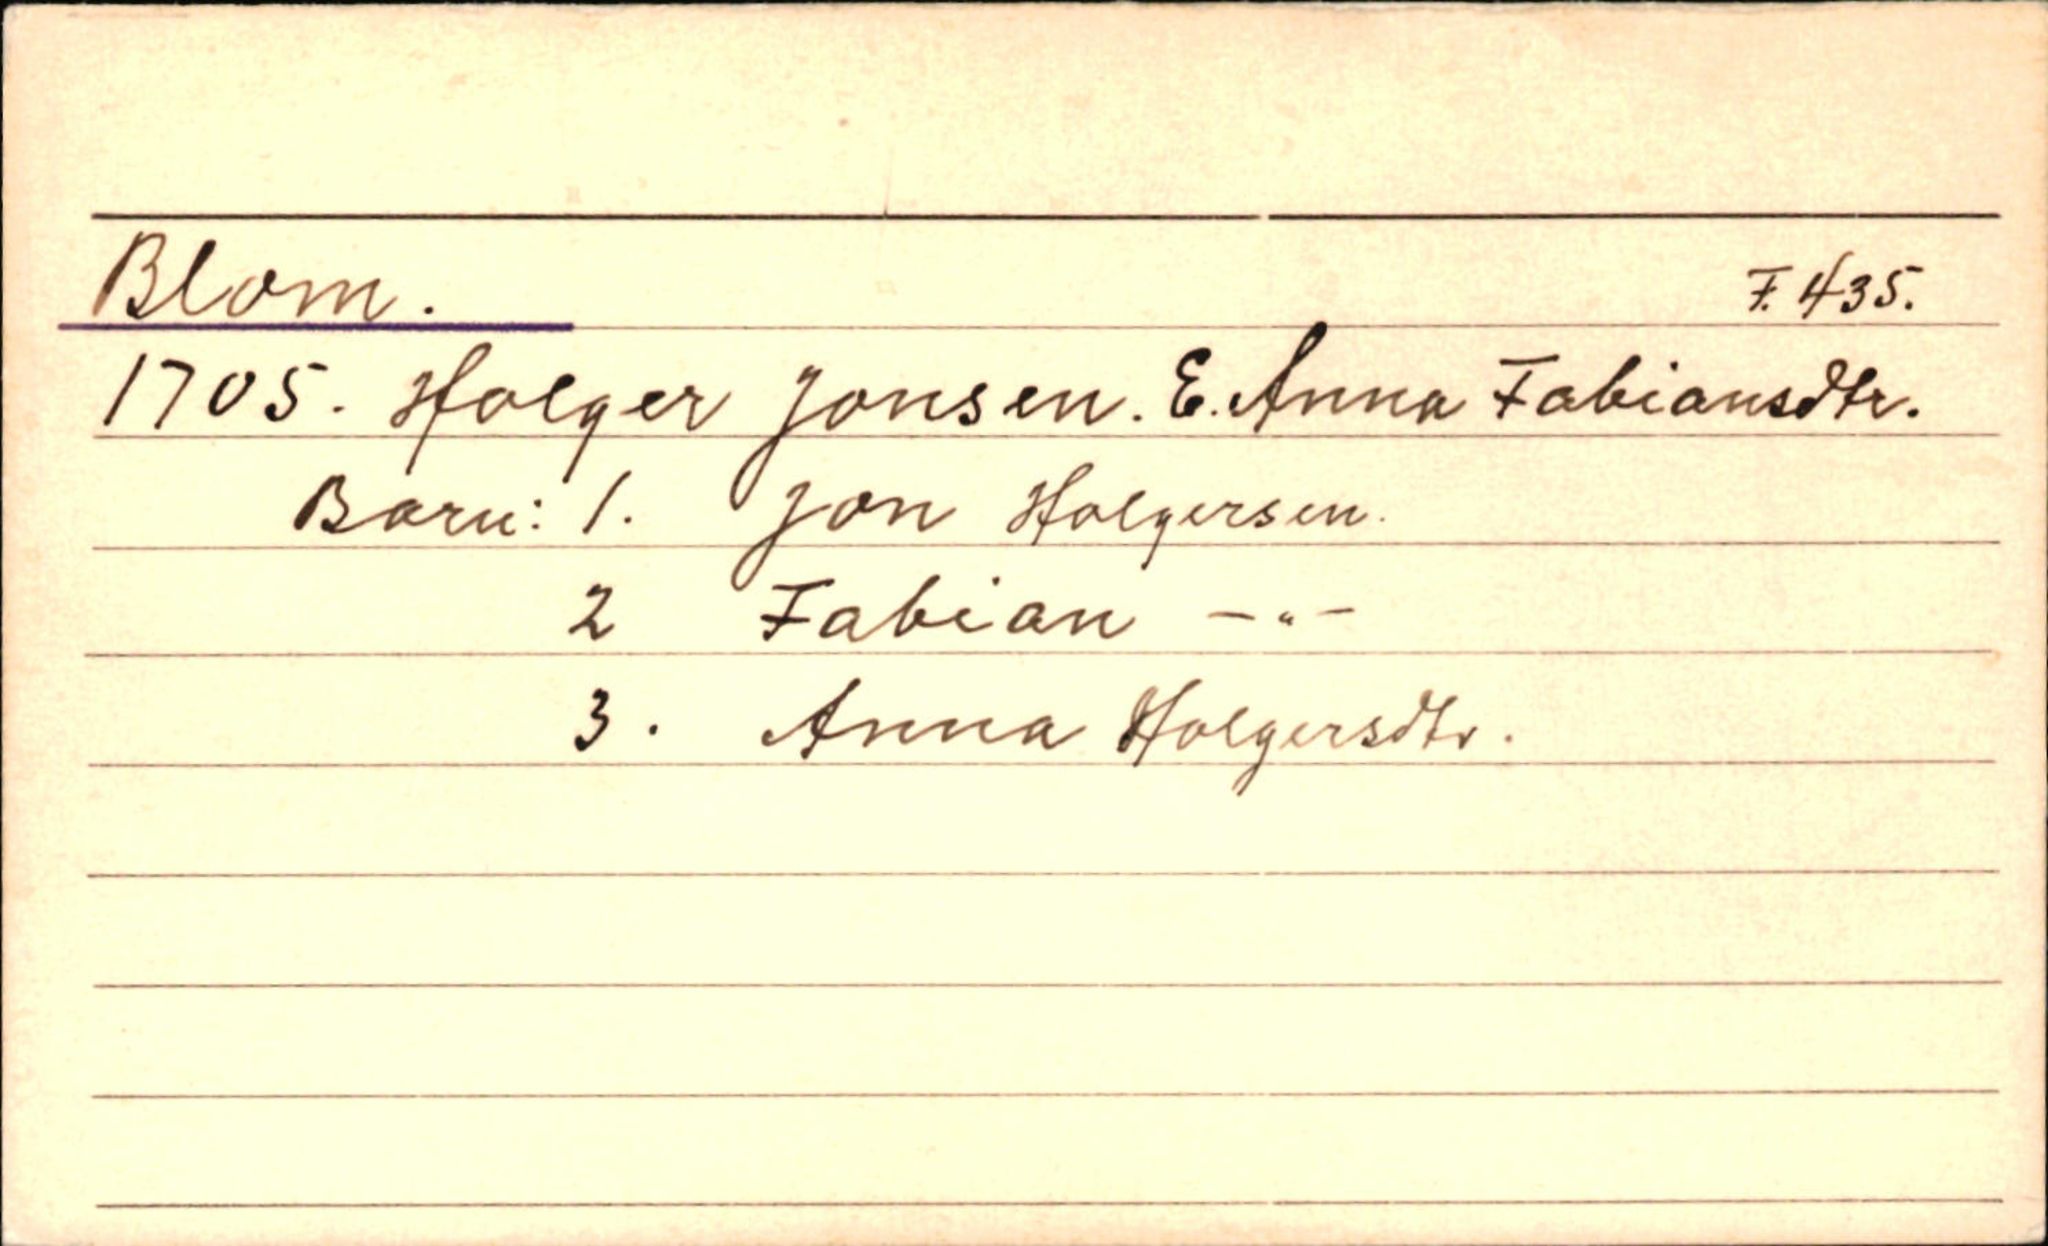 Blom. F. 435.
1705. Holger Jonsen. E. Anna Fabiansdtr.
Barn: 1. Jon Holgersen.
2 Fabian -"-
3. Anna Holgersdtr.